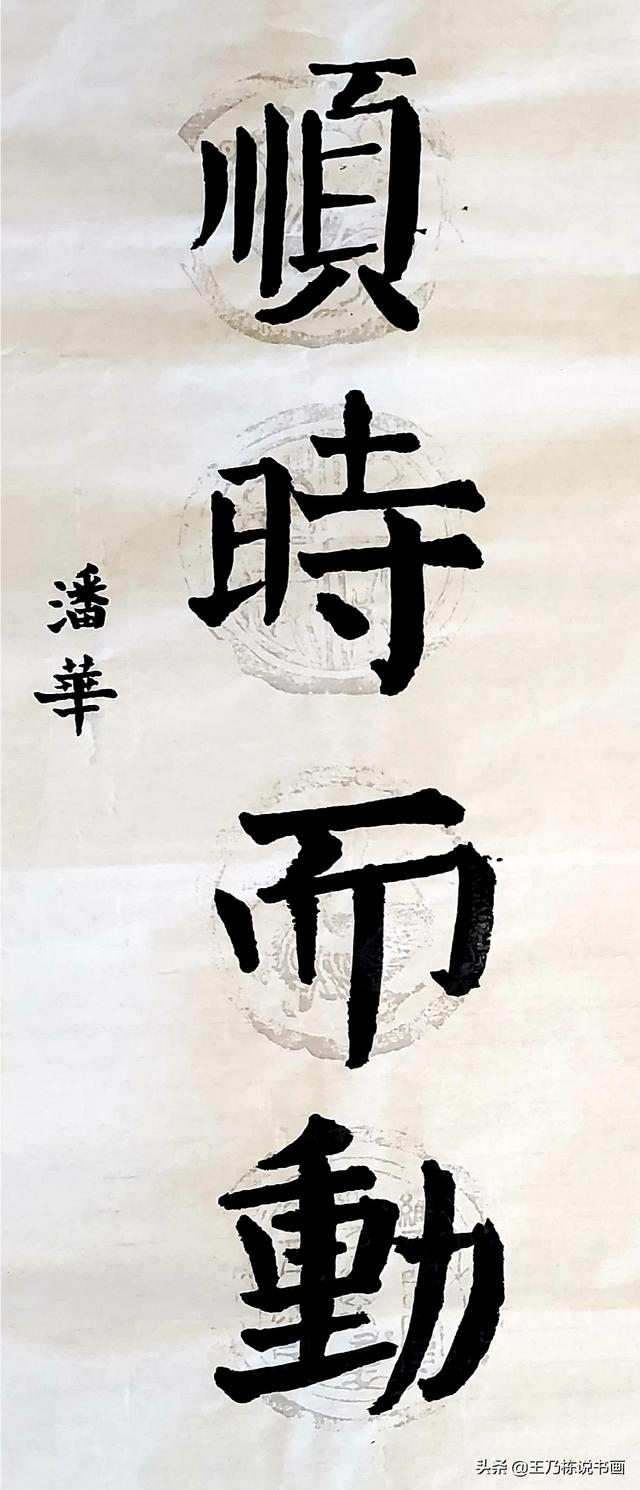 順時而動
潘華
头条 @王乃栋说书画